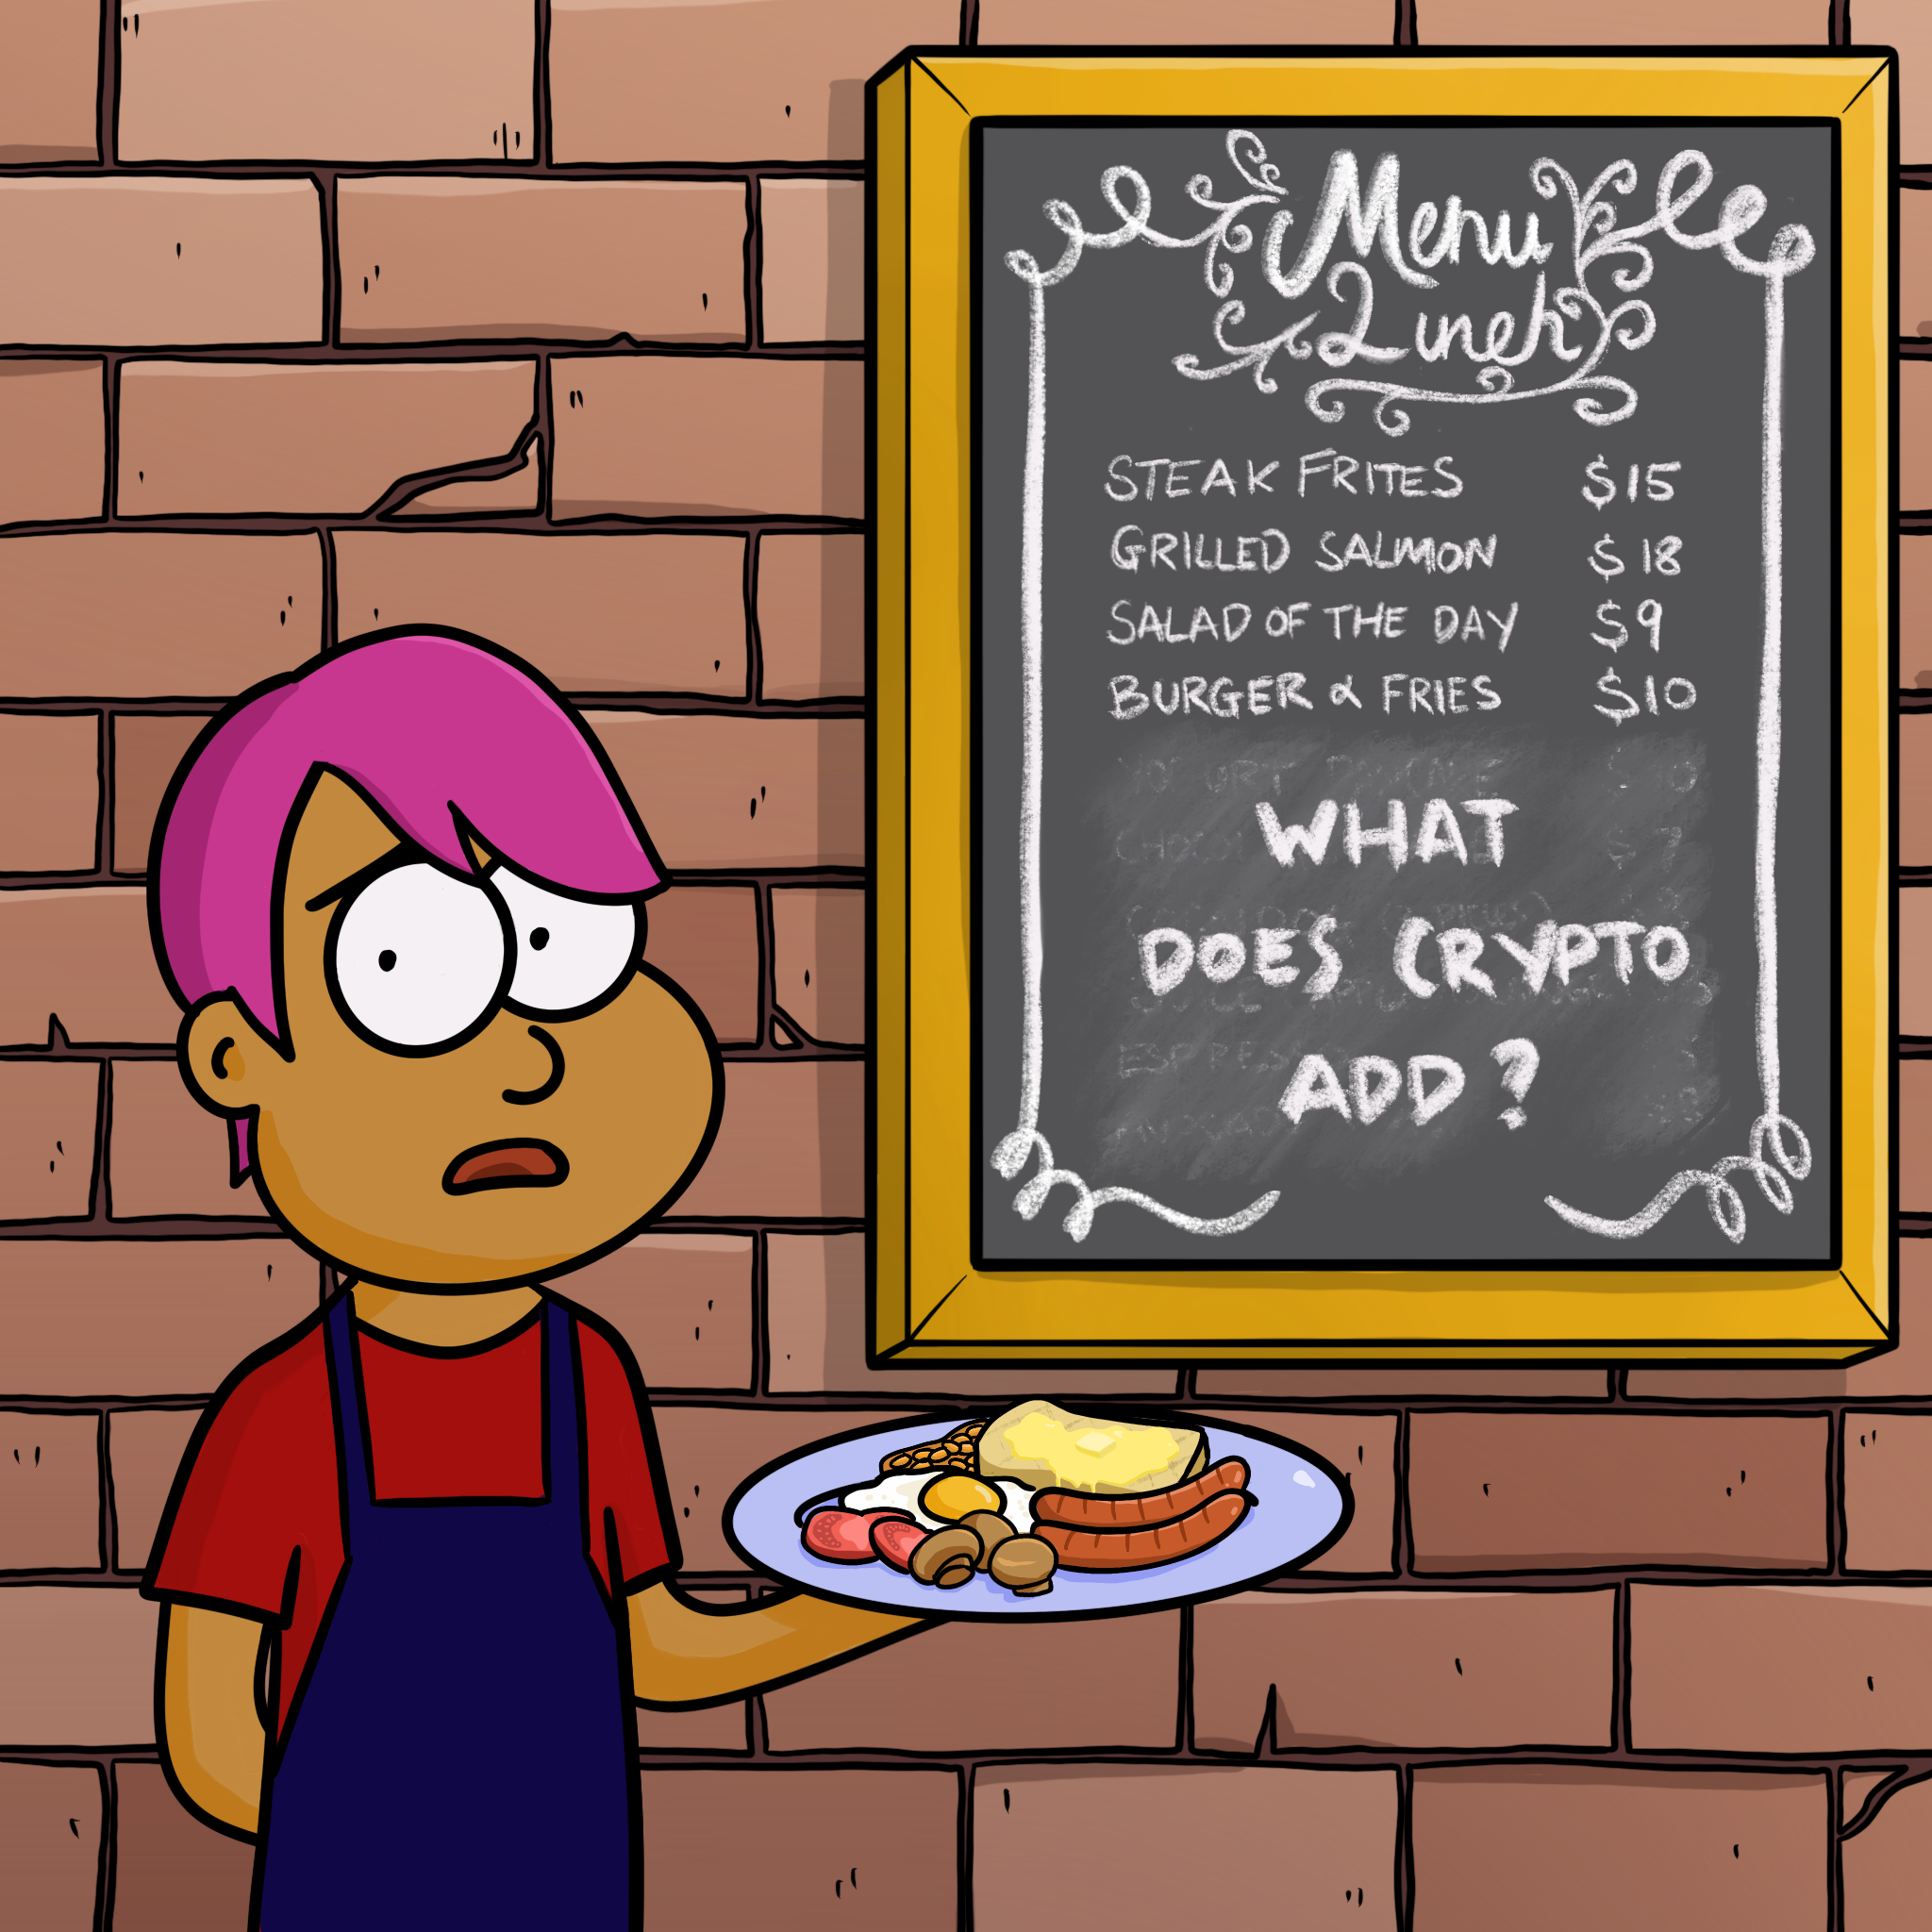 Menu
Lunch
STEAK FRITES $15
GRILLED SALMON $18
SALAD OF THE DAY $9
BURGER & FRIES $10
WHAT
DOES CRYPTO
ADD?